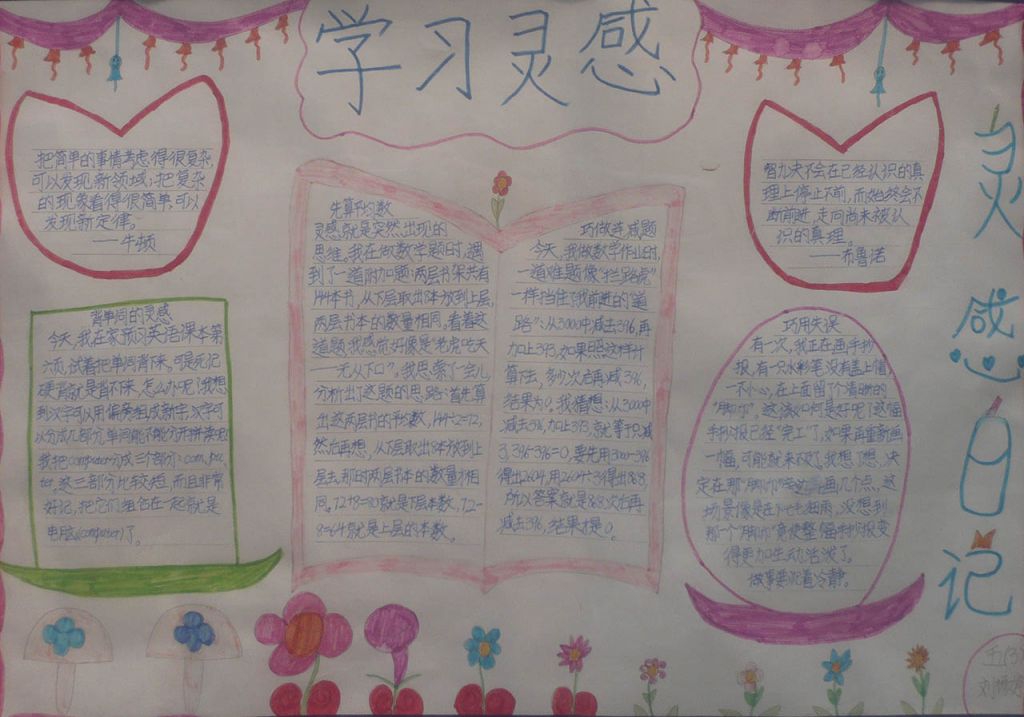 学习灵感
把简单的事情考虑得很复杂,
可以发现新领域;把复杂
的现象看得很简单,可以
发现新定律。
——牛顿
背单词的灵感
今天,我在家预习英语课本第
六页,试着把单词背下来,可是死记
硬背就是背不来,怎么办呢?我想
到汉字可以用偏旁组成新字,汉字可
以分成几部分,单词能不能分开拼读呢?
我把computer分成三个部分:com,pu,
ter,这三部分比较短,而且非常
好记,把它们组合在一起就是
电脑(computer)了。
先算平均数
灵感,就是突然出现的
思维。我在做数学题时,遇
到了一道附加题:两层书架共有
144本书,从下层取出8本放到上层,
两层书本的数量相同。看着这
道题,我感觉好像是“老虎吃天
——无从下口”,我思索了一会儿,
分析出了这题的思路:首先算
出这两层书的平均数,144÷2=72,
然后再想,从下层取出8本放到上
层去,那时两层书本的数量才相
同。72+8=80就是下层本数,72-
8=64就是上层的本数。
巧做连减题
今天,我做数学作业时,
一道难题像“拦路虎”
一样挡住了我前进的“道
路”:从3000中减去396,再
加上393,如果照这样计
算下去,多少次后再减396,
结果为0。我猜想:从3000中
减去396,加上393,就等于只减
3,396-396=0,要先用3000-396
得出2604,用2604÷3得出868,
所以答案就是868次后再
减去396,结果才是0。
智力决不会在已经认识的真
理上停止不前,而始终会不
断前进,走向尚未被认
识的真理。
——布鲁诺
巧用失误
有一次,我正在画手抄
报,有一只水彩笔没有盖上帽,
一不小心,在上面留了个清晰的
“脚印”,这该如何是好呢?这幅
手抄报已经“完工”了,如果再重新画
一幅,可能就来不及了。我想了想,决
定在那“脚印”旁边画几个点,这
场景像是在下毛毛细雨,没想到
那一个“脚印”竟使整幅手抄报变
得更加生动活泼了。
做事要沉着冷静。
灵
感
日
记
五(3)